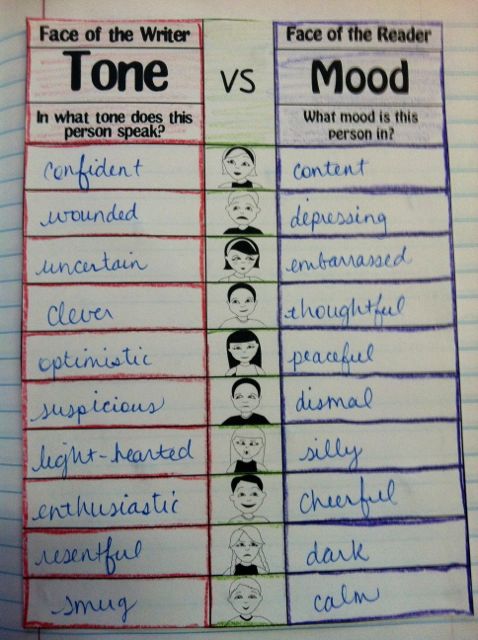 Face of the Writer
Tone
In what tone does this
person speak?
vs
Face of the Reader
Mood
What mood is this
person in?
confident content
wounded depressing
uncertain embarrassed
clever thoughtful
optimistic peaceful
suspicious dismal
light-hearted silly
enthusiastic cheerful
resentful dark
smug calm